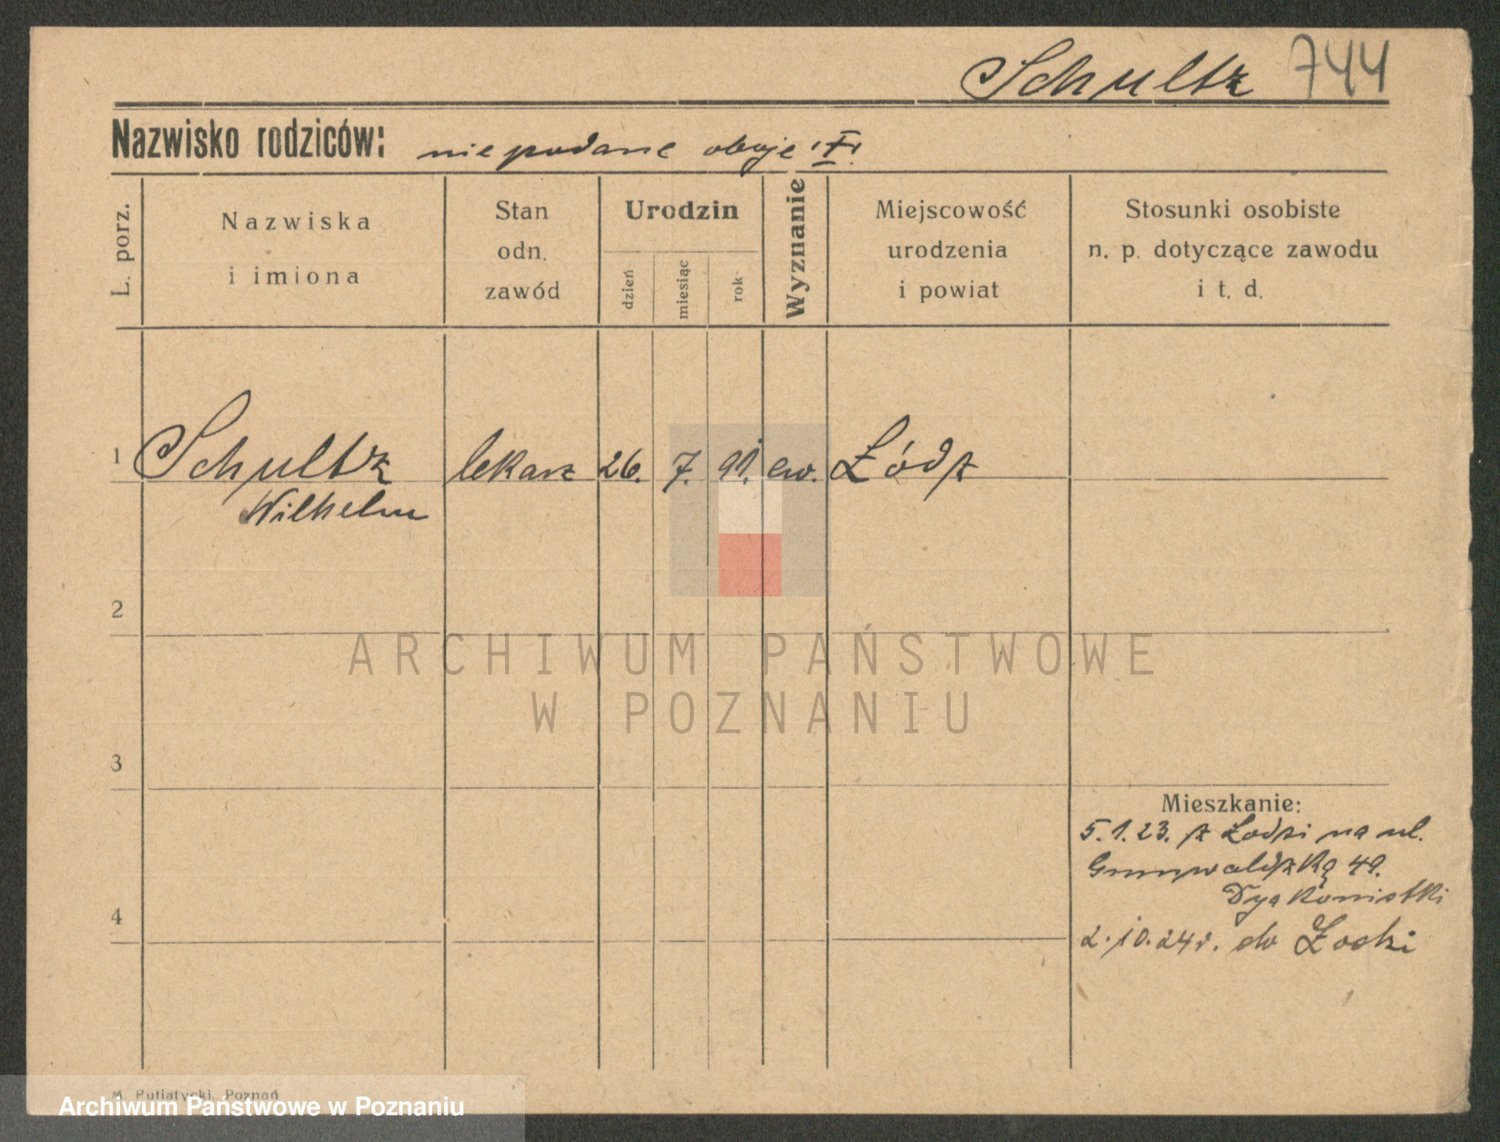 Schultz 744
Nazwisko rodziców: nie podane oboje
L. porz.
Nazwiska
i imiona
Stan
odn.
zawód
Urodzin
dzień
miesiąc
rok
Wyznanie
Miejscowość
urodzenia
i powiat
Stosunki osobiste
n. p. dotyczące zawodu
i t. d.
1 Schultz lekarz 26. 7. 91. ew. Łódz
Wilhelm
2
ARCHIWUM PAŃSTWOWE
W POZNANIU
3
Mieszkanie:
5.1.23. z Łodzi na ul.
Grunwaldzką 49.
Dyakonistki
4
2.10.24r. do Łodzi
M. Putiatycki, Poznań
Archiwum Państwowe w Poznaniu